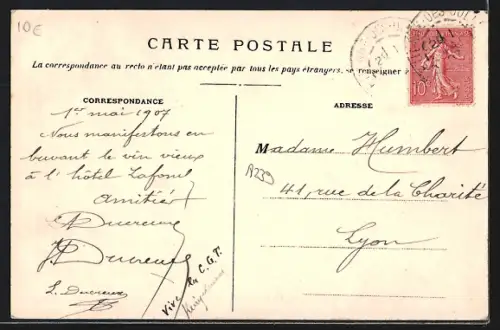 10€
CARTE POSTALE
La correspondance au recto n'étant pas acceptée par tous les pays étrangers, se renseigner
CORRESPONDANCE
ADRESSE
10c
1er mai 1907
Nous manifestons en
buvant le vin vieux
à l'hôtel Lafond
Amitiés
Ducreux
Ducreux
L. Ducreux
Vive la C.G.T.
Madame Humbert
41, rue de la Charité
Lyon
A239